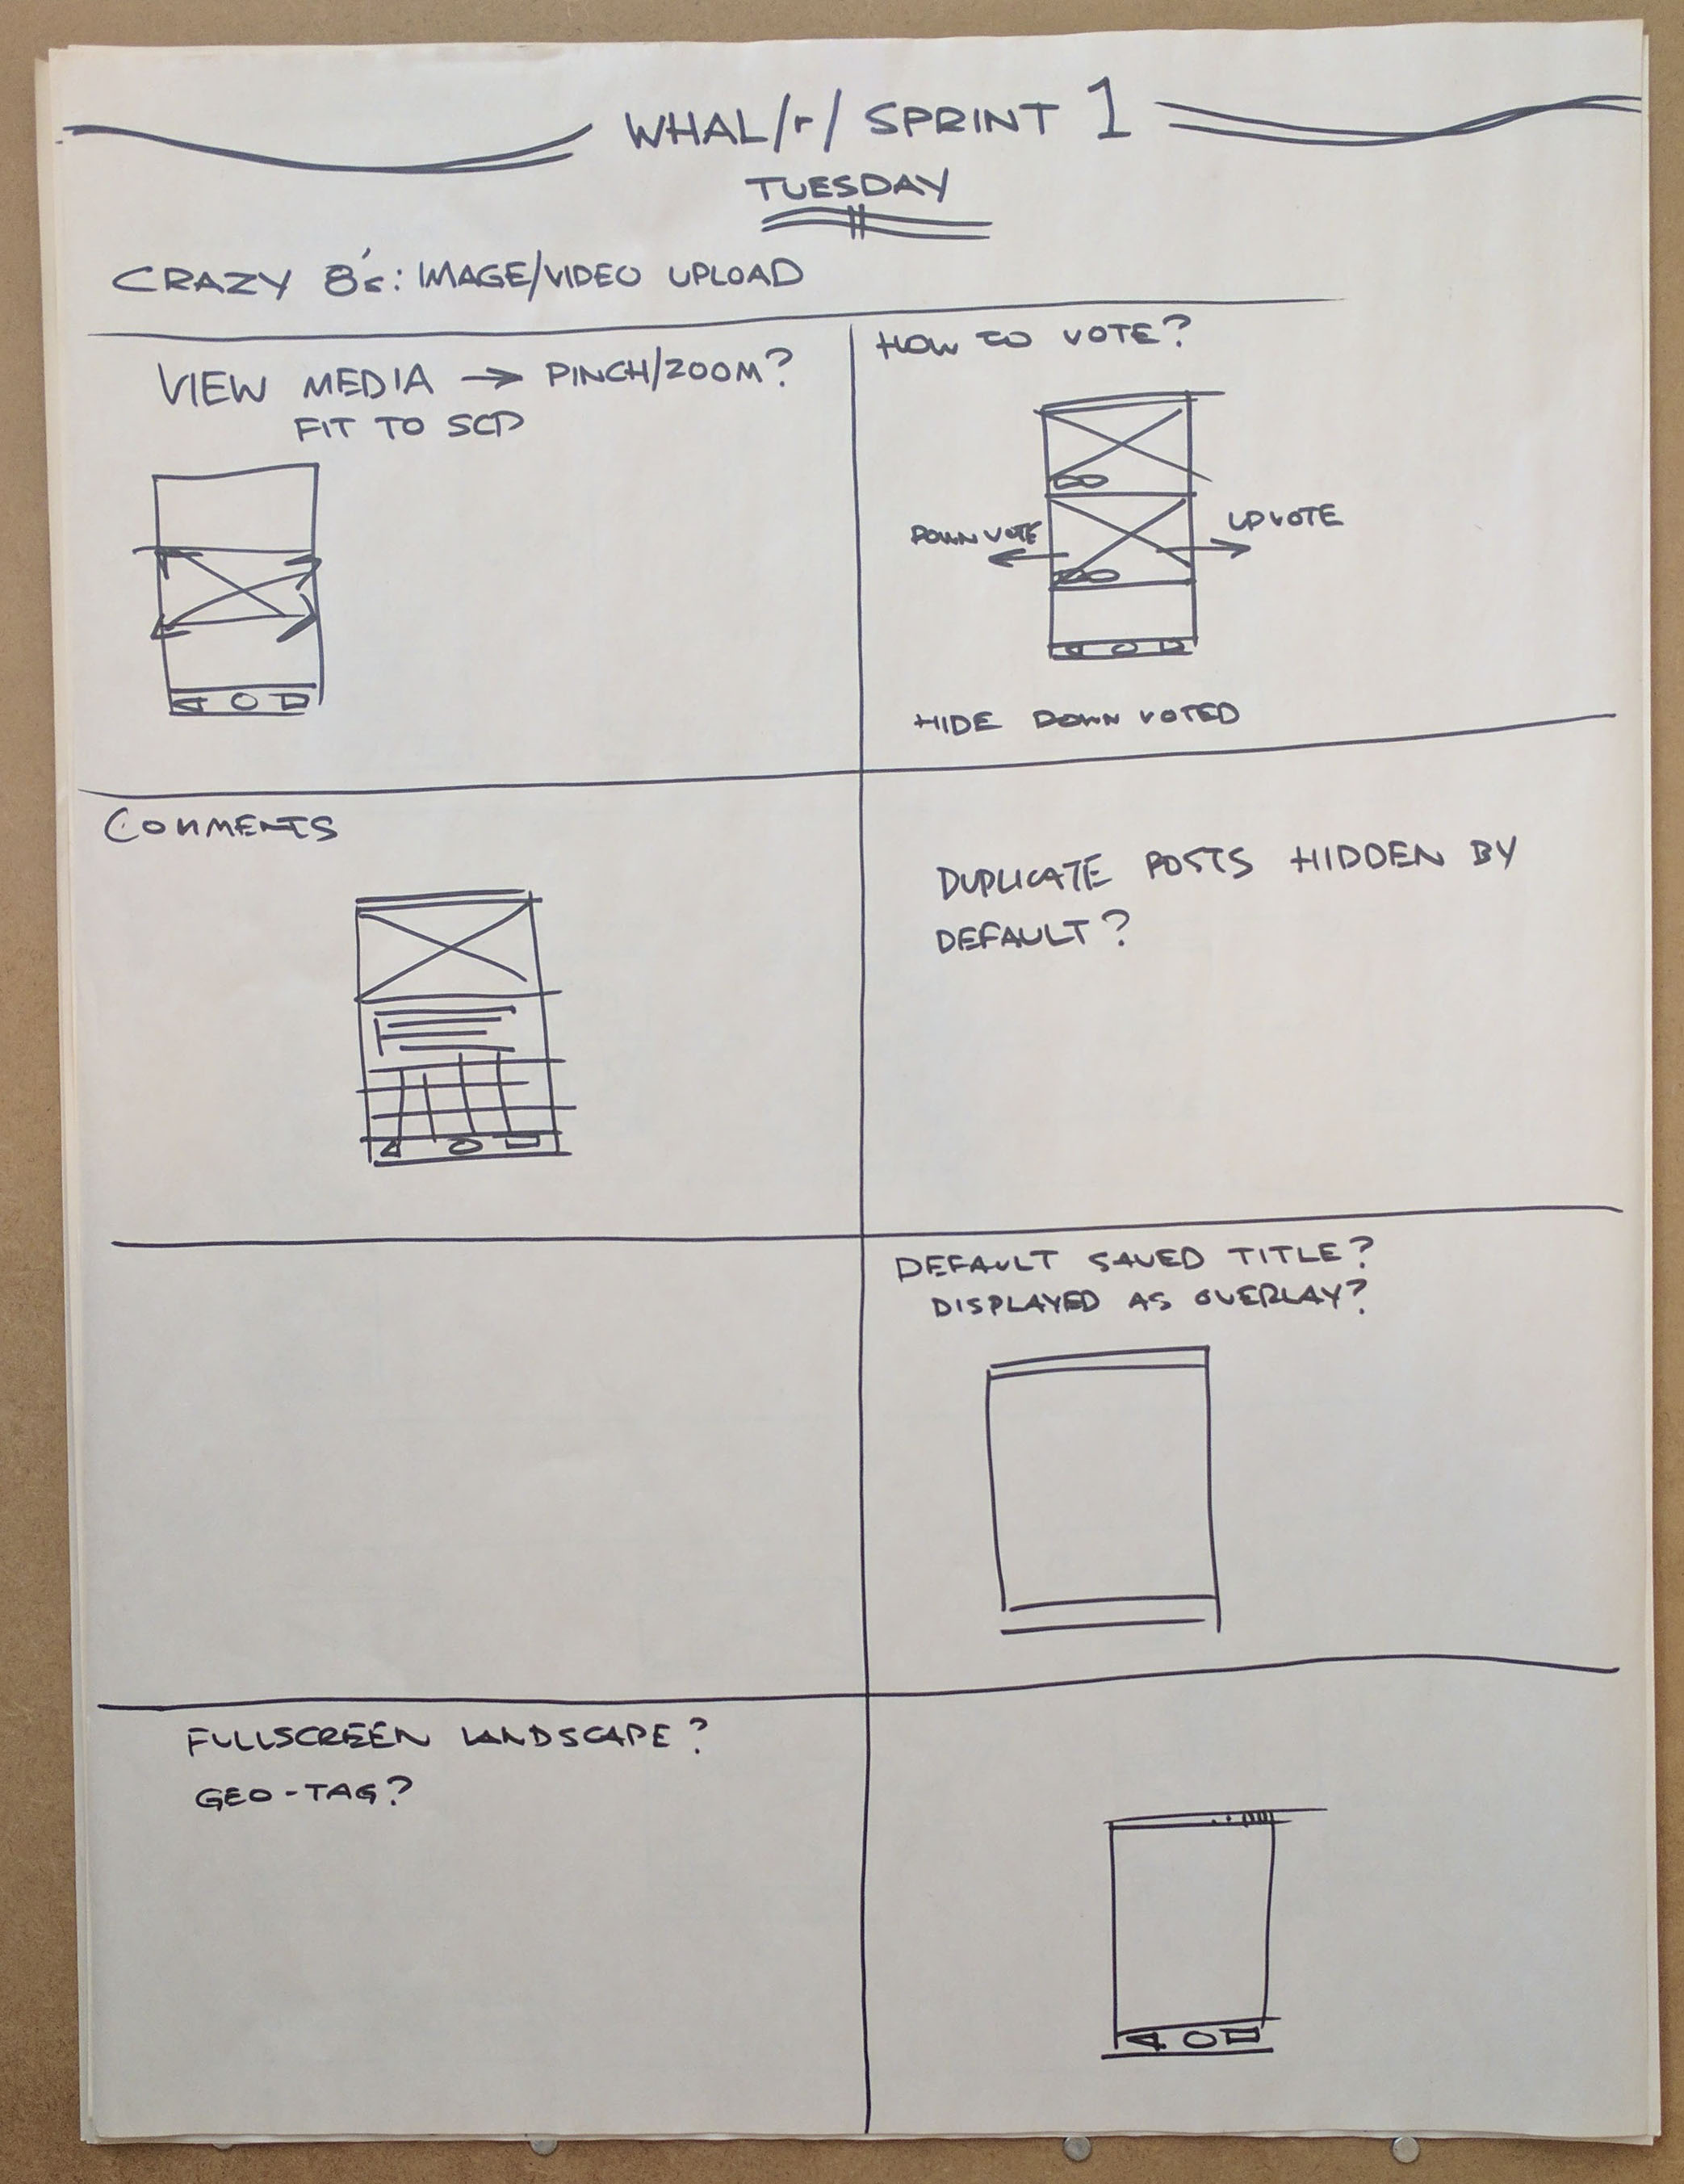 WHAL/r/ SPRINT 1
TUESDAY
CRAZY 8's: IMAGE/VIDEO UPLOAD
VIEW MEDIA → PINCH/ZOOM?
FIT TO SCD
HOW TO VOTE?
DOWNVOTE
UPVOTE
HIDE DOWNVOTED
COMMENTS
DUPLICATE POSTS HIDDEN BY
DEFAULT?
DEFAULT SAVED TITLE?
DISPLAYED AS OVERLAY?
FULLSCREEN LANDSCAPE?
GEO-TAG?